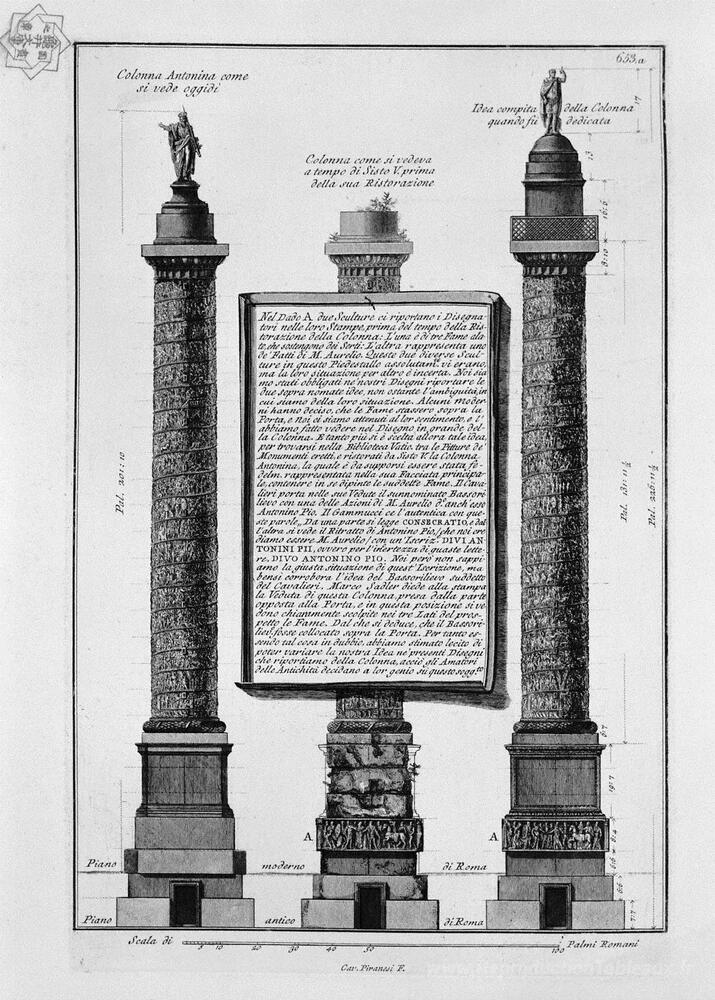 653.a
Colonna Antonina come
si vede oggidì
Colonna come si vedeva
a tempo di Sisto V. prima
della sua Ristorazione
Idea compita della Colonna
quando fù dedicata
Nel Dado A due Sculture ci riportano i Disegna
tori nelle loro Stampe, prima del tempo della Ris
torazione della Colonna: L'una è di tre Fame ala
te, che sostengono dei Serti: L'altra rappresenta uno
de' Fatti di M. Aurelio. Queste due diverse Scul
ture in questo Piedestallo assolutamt. vi erano,
ma la loro situazione per altro è incerta. Noi sia
mo stati obbligati ne' nostri Disegni riportare le
due sopra nomate idee, non ostante l'ambiguità, in
cui siamo della loro situazione. Alcuni Moder
ni hanno deciso, che le Fame stassero sopra la
Porta, e Noi ci siamo attenuti al lor sentimento, e l'
abbiamo fatto vedere nel Disegno in grande del
la Colonna. E tanto più si è scelta allora tale idea,
per trovarsi nella Biblioteca Vatic. tra le Pitture de'
Monumenti eretti, e ristorati da Sisto V. la Colonna
Antonina, la quale è da supporsi essere stata fe
delm. rappresentata nella sua Facciata principa
le, contenere in se dipinte le suddette Fame. Il Cava
lieri porta nelle sue Vedute il sunnominato Bassori
lievo con una delle Azioni di M. Aurelio d.° anch' esso
Antonino Pio. Il Gammucci ce l'autentica con que
ste parole,, Da una parte si legge CONSECRATIO, e dal
l'altra si vede il Ritratto di Antonino Pio, (che noi cre
diamo essere M. Aurelio) con un' Iscriz.e DIVI AN
TONINI PII, ovvero per l'intertezza di quaste lette
re, DIVO ANTONINO PIO. Noi però non sappi
amo la giusta situazione di quest' Iscrizione, ma
bensì corrobora l'idea del Bassorilievo suddetto
del Cavalieri. Marco Sadler diede alla stampa
la Veduta di questa Colonna, presa dalla parte
opposta alla Porta, e in questa posizione si ve
dono chiaramente scolpite nei tre Lati del pros
petto le Fame. Dal che si deduce, che il Bassori
lievo fosse collocato sopra la Porta. Per tanto es
sendo tal cosa in dubbio, abbiamo stimato lecito di
poter variare la nostra Idea ne' presenti Disegni
che riportiamo della Colonna, acciò gli Amatori
delle Antichità decidano a lor genio su questo sogg.to
Pal. 201:10
Pal. 181:11½
Pal. 226:11½
17
13
16:6
8:10
6:7
19:7
A
A
Piano moderno di Roma
Piano antico di Roma
Scala di 5 10 20 30 40 50 100 Palmi Romani
Cav. Piranesi F.